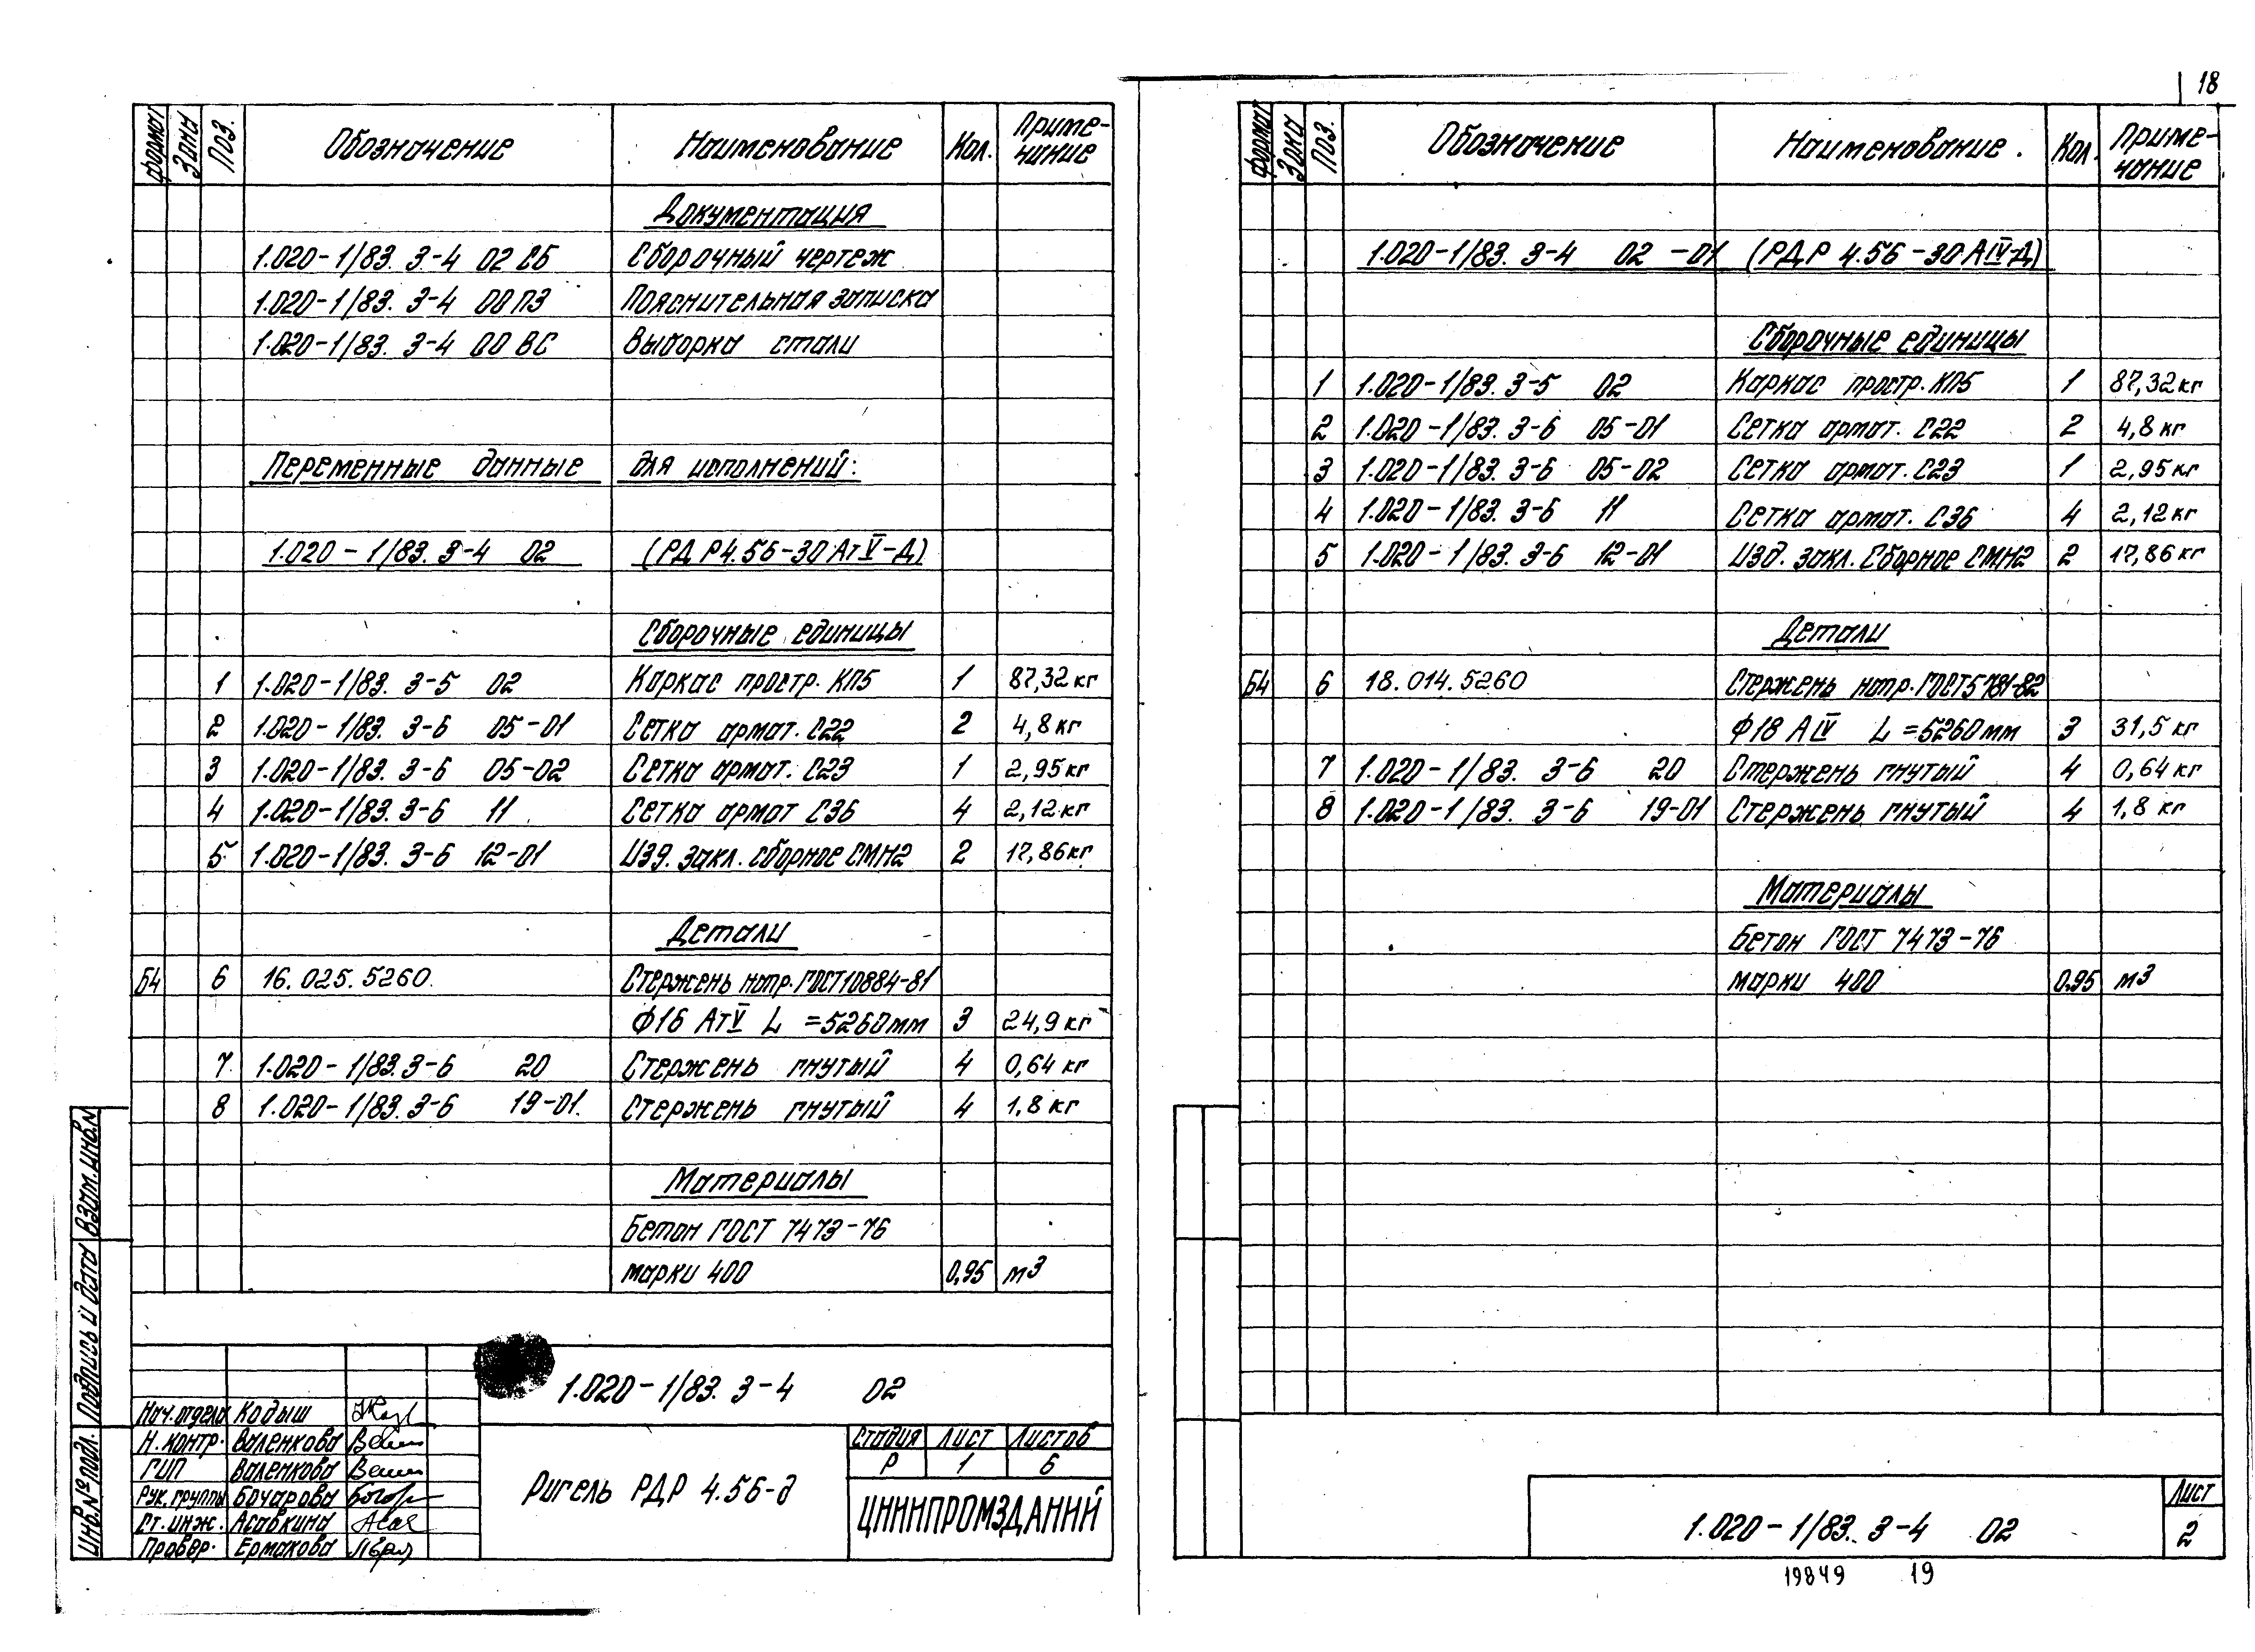 18
Формат Зона Поз. Обозначение Наименование Кол. Приме-
чание
Документация
1.020-1/83. 3-4 02 СБ Сборочный чертеж
1.020-1/83. 3-4 00 ПЗ Пояснительная записка
1.020-1/83. 3-4 00 ВС Выборка стали
Переменные данные для исполнений:
1.020-1/83. 3-4 02 (РДР4.56-30АтV-Д)
Сборочные единицы
1 1.020-1/83. 3-5 02 Каркас простр. КП5 1 87,32кг
2 1.020-1/83. 3-6 05-01 Сетка армат. С22 2 4,8кг
3 1.020-1/83. 3-6 05-02 Сетка армат. С23 1 2,95кг
4 1.020-1/83. 3-6 11 Сетка армат С36 4 2,12кг
5 1.020-1/83. 3-6 12-01 Изд. закл. сборное СМН2 2 17,86кг
Детали
Б4 6 16.025.5260. Стержень напр. ГОСТ10884-81
Ф16 АтV L =5260мм 3 24,9кг
7 1.020-1/83. 3-6 20 Стержень гнутый 4 0,64кг
8 1.020-1/83. 3-6 19-01. Стержень гнутый 4 1,8кг
Материалы
Бетон ГОСТ 7473-76
марки 400 0,95 м3
Взам. инв.N
Подпись и дата
Инв.№ подл.
1.020-1/83. 3-4 02
Нач. отдела Кодыш
Н. контр. Валенкова
ГИП Валенкова
Рук. группы Бочарова
Ст. инж. Асавкина
Провер. Ермакова
Ригель РДР 4.56-д
Стадия Лист Листов
Р 1 6
ЦНИИПРОМЗДАНИЙ
Формат Зона Поз. Обозначение Наименование. Кол. Приме-
чание
1.020-1/83. 3-4 02 -01 (РДР 4.56-30АIV-Д)
Сборочные единицы
1 1.020-1/83. 3-5 02 Каркас простр. КП5 1 87,32кг
2 1.020-1/83. 3-6 05-01 Сетка армат. С22 2 4,8кг
3 1.020-1/83. 3-6 05-02 Сетка армат. С23 1 2,95кг
4 1.020-1/83. 3-6 11 Сетка армат. С36 4 2,12кг
5 1.020-1/83. 3-6 12-01 Изд. закл. Сборное СМН2 2 17,86кг
Детали
Б4 6 18.014.5260 Стержень напр. ГОСТ5781-82
Ф18 АIV L =5260мм 3 31,5кг
7 1.020-1/83. 3-6 20 Стержень гнутый 4 0,64кг
8 1.020-1/83. 3-6 19-01 Стержень гнутый 4 1,8кг
Материалы
Бетон ГОСТ 7473-76
марки 400 0.95 м3
1.020-1/83. 3-4 02
Лист
2
19849 19